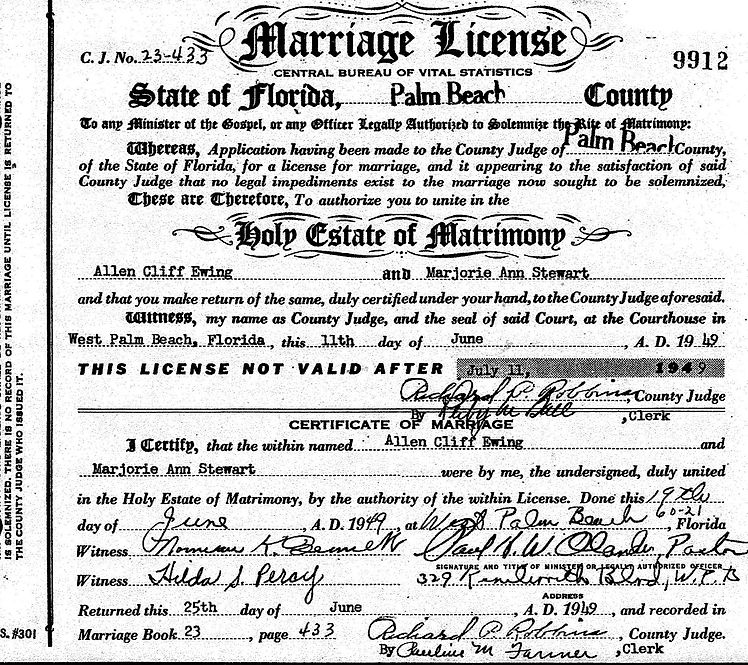 Marriage License
C. J. No. 23-433
9912
CENTRAL BUREAU OF VITAL STATISTICS
State of Florida, Palm Beach County
To any Minister of the Gospel, or any Officer Legally Authorized to Solemnize the Rite of Matrimony:
Whereas, Application having been made to the County Judge of Palm Beach County,
of the State of Florida, for a license for marriage, and it appearing to the satisfaction of said
County Judge that no legal impediments exist to the marriage now sought to be solemnized,
These are Therefore, To authorize you to unite in the
Holy Estate of Matrimony
Allen Cliff Ewing and Marjorie Ann Stewart
and that you make return of the same, duly certified under your hand, to the County Judge aforesaid.
Witness, my name as County Judge, and the seal of said Court, at the Courthouse in
West Palm Beach, Florida, this 11th day of June, A. D. 1949
THIS LICENSE NOT VALID AFTER July 11, 1949
Richard P. Robbins County Judge
By Clerk
CERTIFICATE OF MARRIAGE
I Certify, that the within named Allen Cliff Ewing and
Marjorie Ann Stewart were by me, the undersigned, duly united
in the Holy Estate of Matrimony, by the authority of the within License. Done this 19th
day of June, A. D. 1949, at West Palm Beach, Florida
60-21
Witness K. Bennett Paul Pastor
SIGNATURE AND TITLE OF MINISTER OR LEGALLY AUTHORIZED OFFICER
Witness Hilda S. Percy 329 Blvd, W. P. B
ADDRESS
Returned this 25th day of June, A. D. 1949, and recorded in
Marriage Book 23, page 433 Richard P. Robbins, County Judge.
By Pauline M Farmer, Clerk
IS SOLEMNIZED. THERE IS NO RECORD OF THIS MARRIAGE UNTIL LICENSE IS RETURNED TO
THE COUNTY JUDGE WHO ISSUED IT.
S. #301